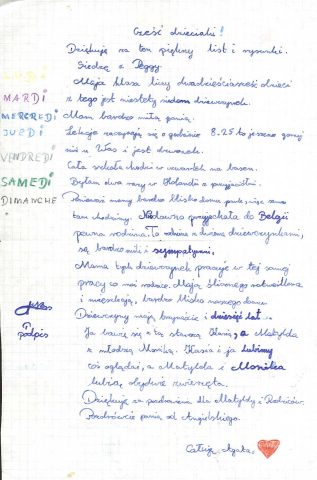 Cześć dzieciaki!
Dziękuję za ten piękny list i rysunki.
Siedzę z Peggy.
Moja klasa liczy dwadzieścia dzieci
z tego jest niestety siedem dziewczynek.
Mam bardzo miłą panią.
Lekcje zaczynają się o godzinie 8.25 to jeszcze gorzej
niż u Was i jest dzwonek.
Cała szkoła chodzi w czwartek na basen.
Byłam dwa razy w Holandii z przyjaciółmi.
mamy bardzo blisko domu park, więc sama
tam chodzimy. Niedawno przyjechała do Belgii
pewna rodzina. Ta rodzina z dwiema dziewczynkami,
są bardzo mili i sympatyczni,
Mama tych dziewczynek pracuje w tej samej
pracy co moi rodzice. Mają
i mieszkają, bardzo blisko naszego domu
Dziewczyny mają i dziesięć lat.
Ja bawię się z tą starszą Kasią, a Matylda
z młodszą Moniką. Kasia i ja lubimy
coś oglądać, a Matylda i Monika
lubią obydwie zwierzęta.
Dziękuję za pozdrowienia dla Matyldy i Rodziców.
Pozdrówcie panią od Angielskiego.
Całuję Agata.
MARDI
MERCREDI
JEUDI
VENDREDI
SAMEDI
DIMANCHE
podpis